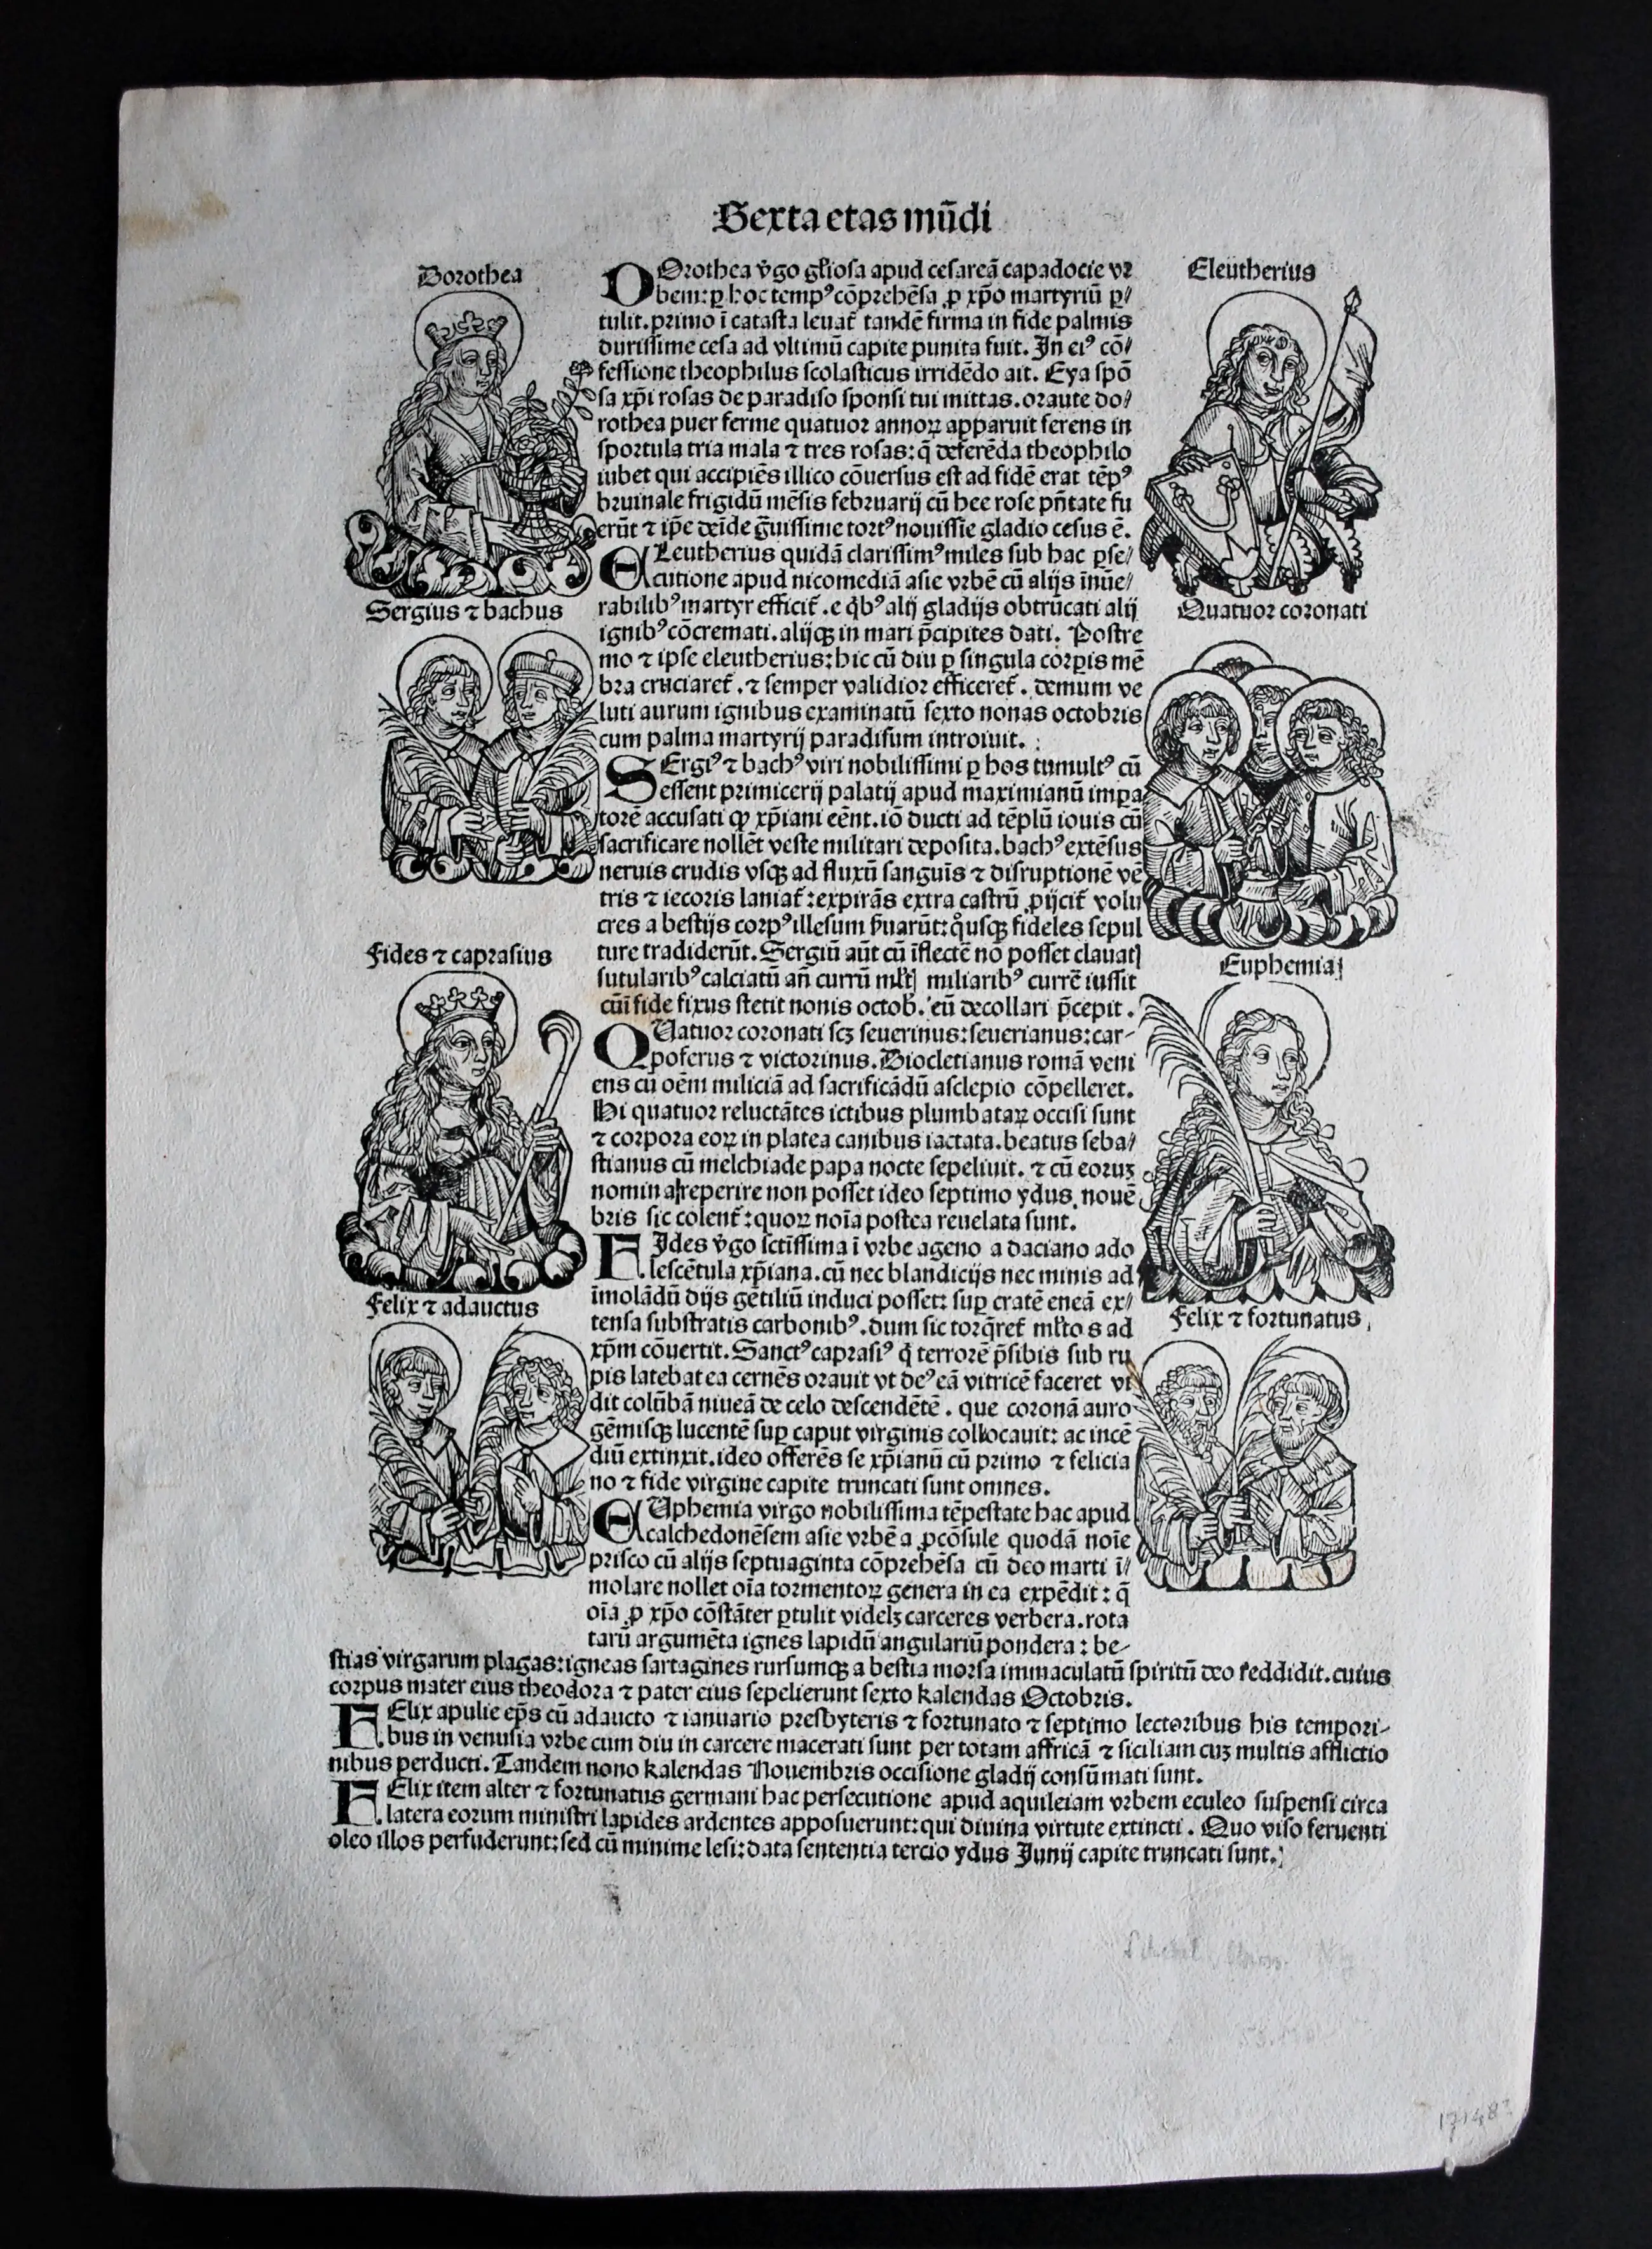 Sexta etas mũdi
Dorothea
DOrothea v̄go gl̃iosa apud cesareã capadocie vr
bem: ꝑ hoc tempꝰ cõprehẽsa ꝓ xp̃o martyriũ ꝑ/
tulit. primo ĩ catasta leuat̃ tandẽ firma in fide palmis
durissime cesa ad vltimũ capite punita fuit. In eiꝰ cõ/
fessione theophilus scolasticus irridẽdo ait. Eya spõ
sa xp̃i rosas de paradiso sponsi tui mittas. oraute do/
rothea puer ferme quatuor annoꝝ apparuit ferens in
sportula tria mala ⁊ tres rosas: q̃ deferẽda theophilo
iubet qui accipiẽs illico cõuersus est ad fidẽ erat tẽpꝰ
bruinale frigidũ mẽsis februarij cũ hee rose pñtate fu
erũt ⁊ ip̃e deĩde g̃uissime tortꝰ nouissie gladio cesus ẽ.
Eleutherius
ELeutherius quidã clarissimꝰ miles sub hac ꝑse/
cutione apud nicomediã asie vrbẽ cũ alijs ĩnũe/
rabilibꝰ martyr efficit̃. e q̇bꝰ alij gladijs obtrũcati alij
ignibꝰ cõcremati. alijqꝫ in mari p̃cipites dati. Postre
mo ⁊ ipse eleutherius: hic cũ diu ꝑ singula corꝑis mẽ
bra cruciaret̃. ⁊ semper validior efficeret̃. demum ve
luti aurum ignibus examinatũ sexto nonas octobris
cum palma martyrij paradisum introiuit.
Sergius ⁊ bachus
SErgiꝰ ⁊ bachꝰ viri nobilissimi ꝑ hos tumultꝰ cũ
essent primicerij palatij apud maximianũ impa
torẽ accusati ꝙ xp̃iani eẽnt. iõ ducti ad tẽplũ iouis cũ
sacrificare nollẽt veste militari deposita. bachꝰ extẽsus
neruis crudis vsqꝫ ad fluxũ sanguĩs ⁊ disruptionẽ vẽ
tris ⁊ iecoris laniat̃: expirãs extra castrũ ꝓijcit̃ volu
cres a bestijs corpꝰ illesum ẜuarũt: q̊usqꝫ fideles sepul
ture tradiderũt. Sergiũ aũt cũ ĩflectẽ nõ posset clauatꝭ
sutularibꝰ calciatũ añ currũ ml̃tꝭ miliaribꝰ currẽ iussit
cũĩ fide fixus stetit nonis octob̃. eũ decollari p̃cepit.
Quatuor coronati
QUatuor coronati scꝫ seuerinus: seuerianus: car-
poferus ⁊ victorinus. Diocletianus romã veni
ens cũ oẽm miliciã ad sacrificãdũ asclepio cõpelleret.
Hi quatuor reluctãtes ictibus plumbataꝝ occisi sunt
⁊ corpora eoꝝ in platea canibus iactata. beatus seba/
stianus cũ melchiade papa nocte sepeliuit. ⁊ cũ eoruꝫ
nomina reperire non posset ideo septimo ydus nouẽ
bris sic colent̃: quoꝝ noĩa postea reuelata sunt.
Fides ⁊ caprasius
FIdes v̄go sctĩssima ĩ vrbe ageno a daciano ado
lescẽtula xp̃iana. cũ nec blandicijs nec minis ad
ĩmolãdũ dijs gẽtiliũ induci posset: suꝑ cratẽ eneã ex/
tensa substratis carbonibꝰ. dum sic torq̃ret̃ ml̃tos ad
xp̃m cõuertit. Sanctꝰ caprasiꝰ q̇ terrorẽ p̃sibis sub ru
pis latebat ea cernẽs orauit vt deꝰ eã vitricẽ faceret vi
dit colũbã niueã de celo descendẽtẽ. que coronã auro
gẽmisqꝫ lucentẽ suꝑ caput virginis collocauit: ac incẽ
diũ extinxit. ideo offerẽs se xp̃ianũ cũ primo ⁊ felicia
no ⁊ fide virgine capite truncati sunt omnes.
Euphemia
EUphemia virgo nobilissima tẽpestate hac apud
calchedonẽsem asie vrbẽ a ꝓcõsule quodã noĩe
prisco cũ alijs septuaginta cõprehẽsa cũ deo marti ĩ/
molare nollet oĩa tormentoꝝ genera in ea expẽdit: q̃
oĩa ꝓ xp̃o cõstãter ꝑtulit videlꝫ carceres verbera. rota
tarũ argumẽta ignes lapidũ angulariũ pondera: be-
stias virgarum plagas: igneas sartagines rursumqꝫ a bestia morsa immaculatũ spiritũ deo reddidit. cuius
corpus mater eius theodora ⁊ pater eius sepelierunt sexto kalendas Octobris.
Felix ⁊ adauctus
FElix apulie ep̃s cũ adaucto ⁊ ianuario presbyteris ⁊ fortunato ⁊ septimo lectoribus his tempori-
bus in venusia vrbe cum diu in carcere macerati sunt per totam affricã ⁊ siciliam cuꝫ multis afflictio
nibus perducti. Tandem nono kalendas Nouembris occisione gladij consũmati sunt.
Felix ⁊ fortunatus
FElix item alter ⁊ fortunatus germani hac persecutione apud aquileiam vrbem eculeo suspensi circa
latera eorum ministri lapides ardentes apposuerunt: qui diuina virtute extincti. Quo viso feruenti
oleo illos perfuderunt: sed cũ minime lesi: data sententia tercio ydus Junij capite truncati sunt.